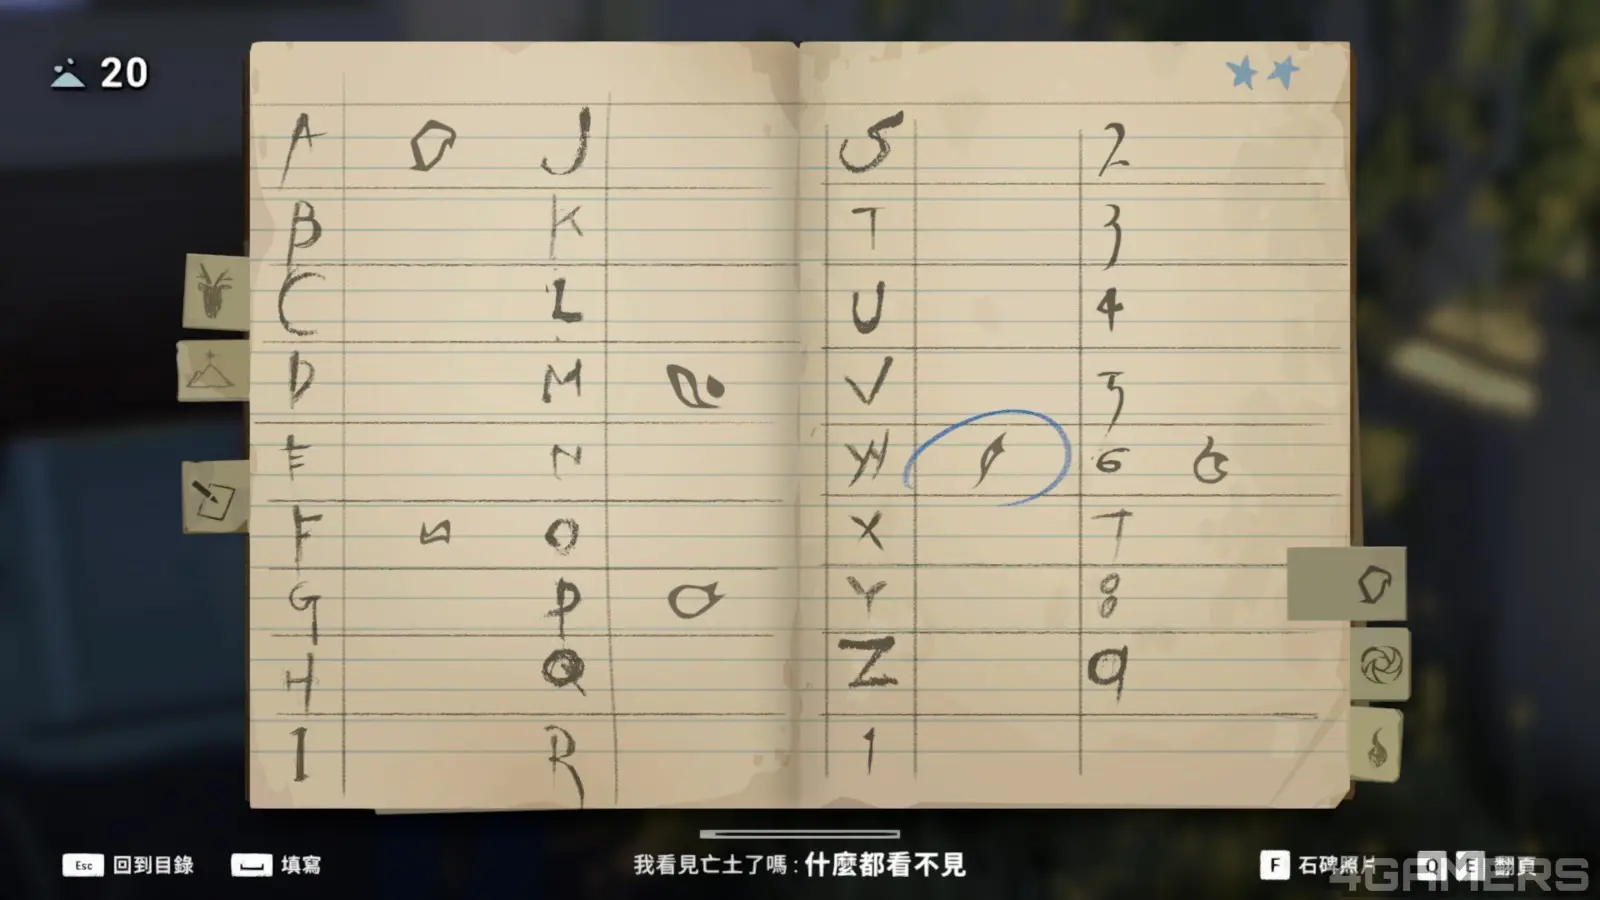 20
A J S 2
B K T 3
C L U 4
D M V 5
E N W 6
F O X 7
G P Y 8
H Q Z 9
I R 1
Esc 回到目錄 填寫 我看見亡土了嗎：什麼都看不見 F 石碑照片 Q E 翻頁
4GAMERS